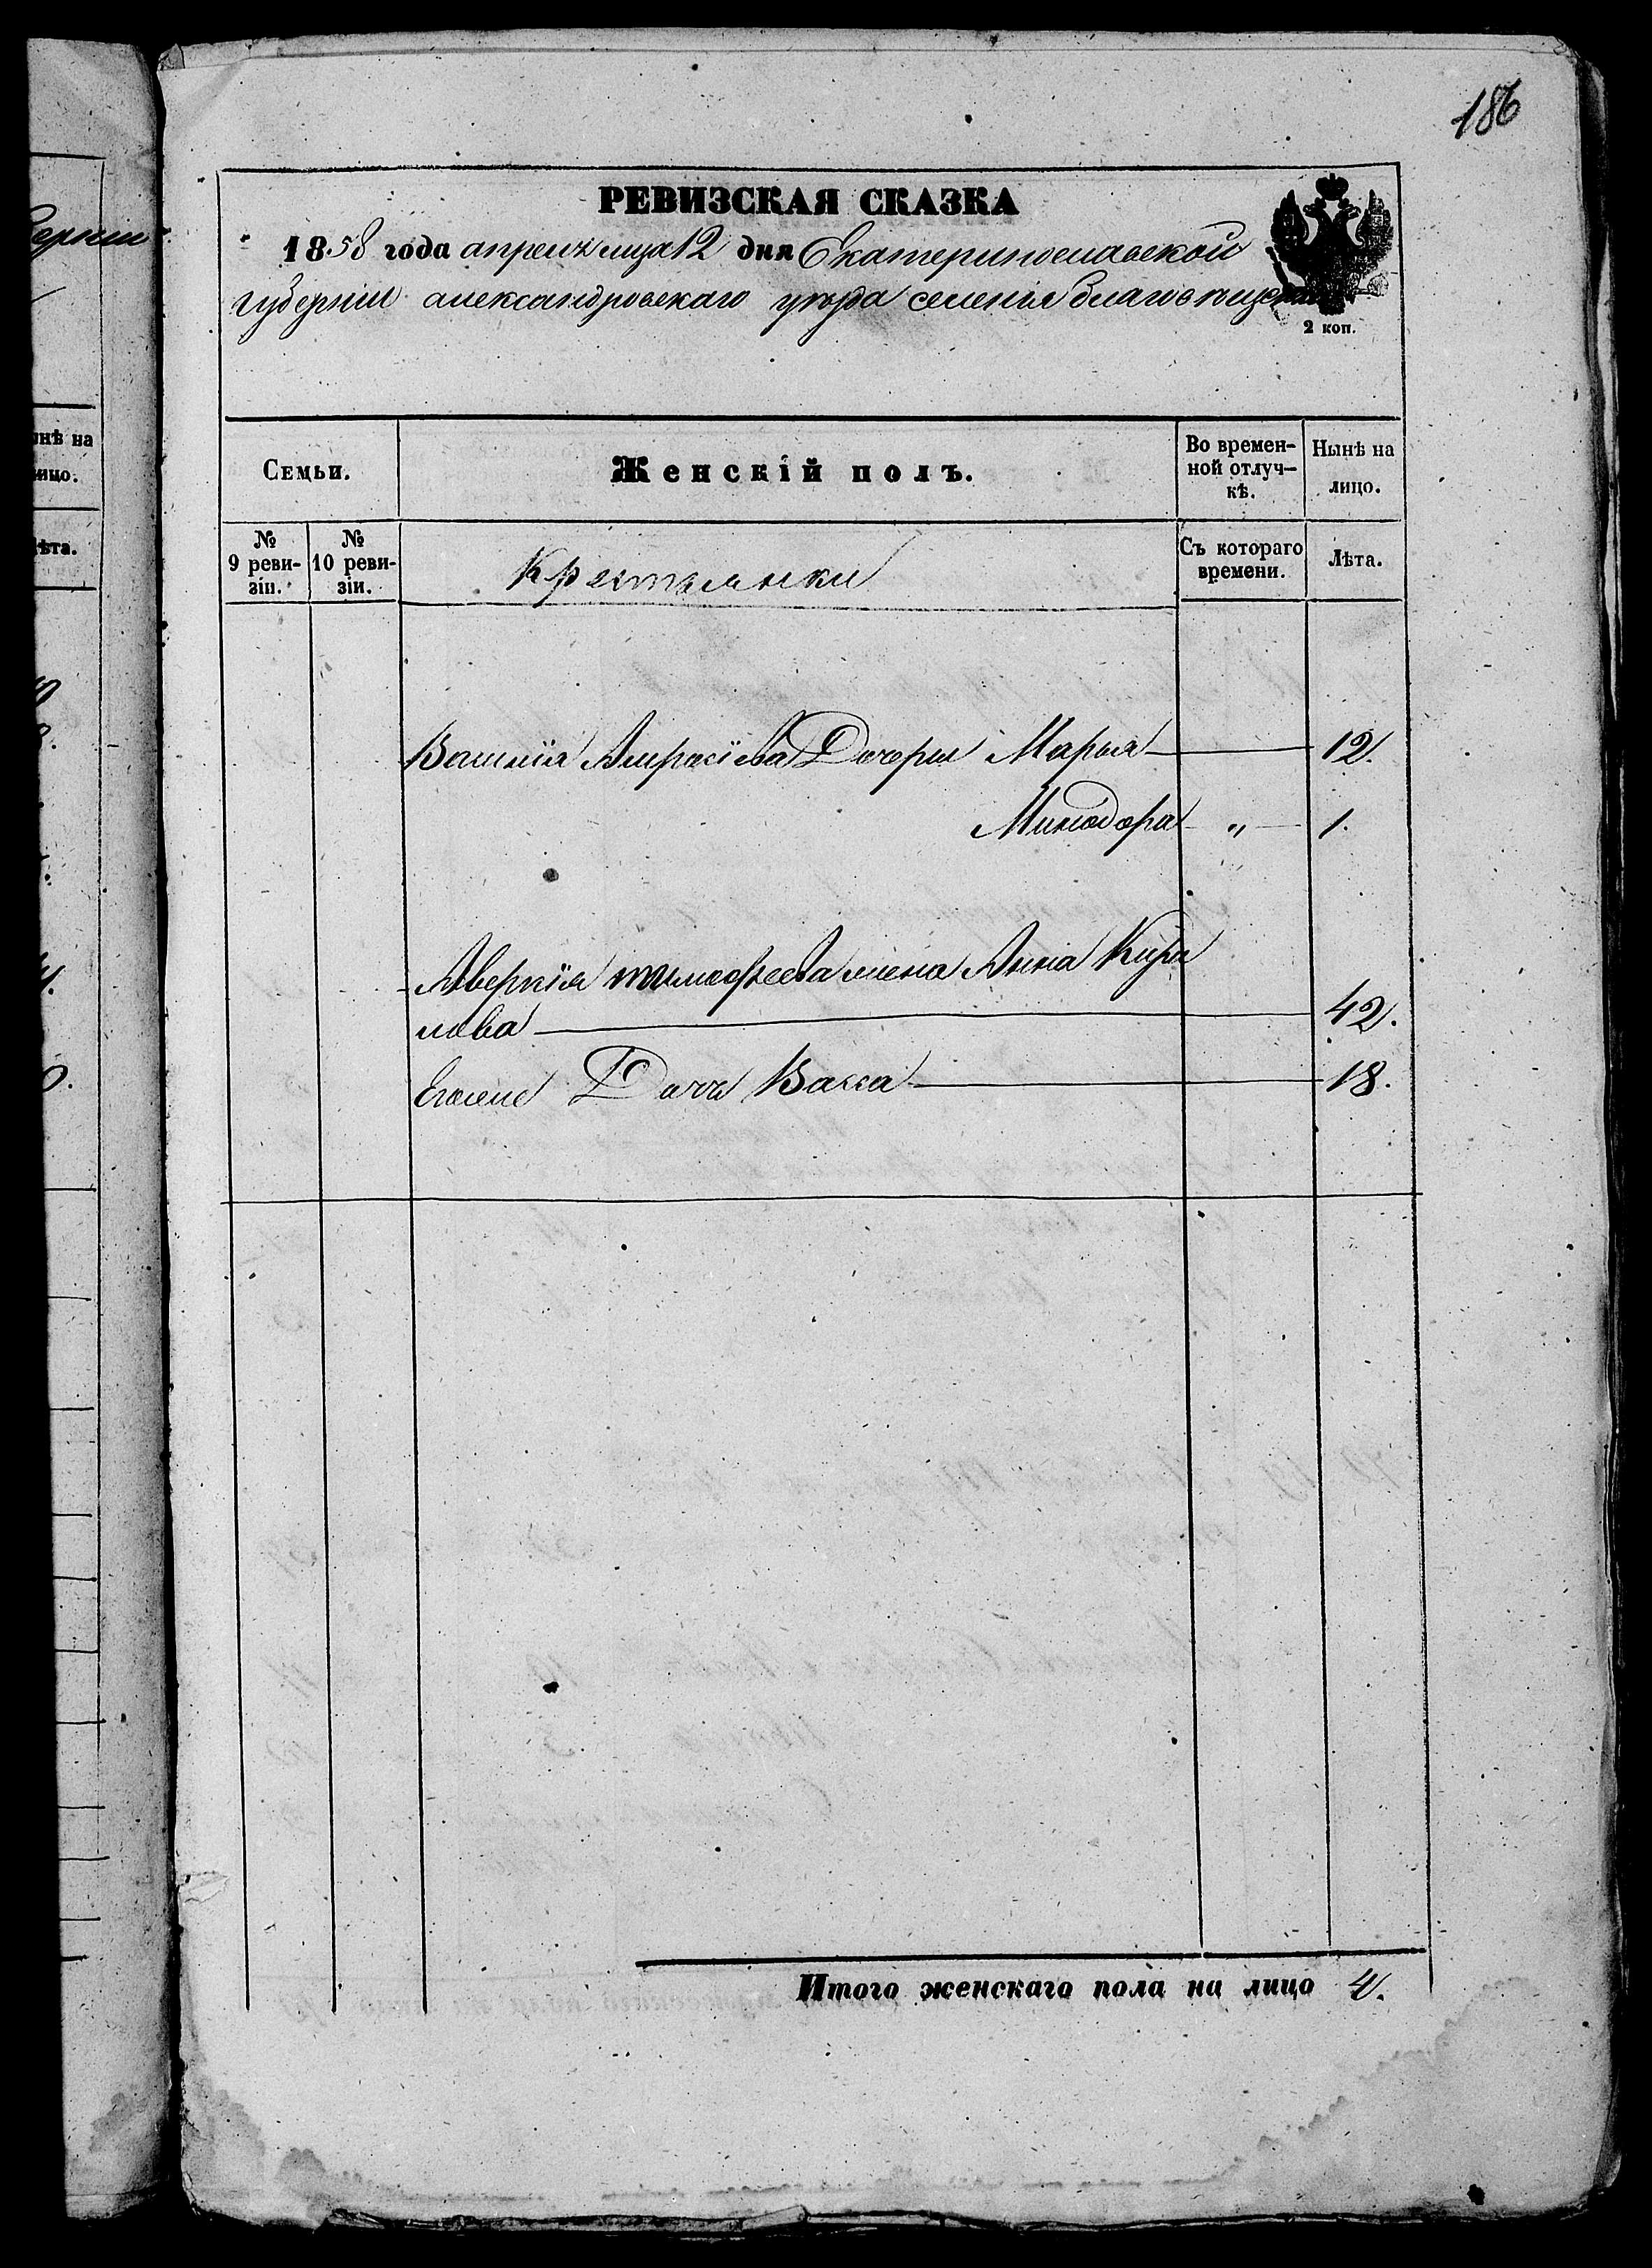 186
РЕВИЗСКАЯ СКАЗКА
1858 года апреля мца 12 дня Екатеринославской
губерніи александровскаго уезда селенія благовещенки
2 коп.
Семьи.
Женскій полъ.
Во времен-
ной отлуч-
кѣ.
Нынѣ на
лицо.
№
9 реви-
зіи.
№
10 реви-
зіи.
Крестьянки
Съ котораго
времени.
Лѣта.
Дочери Марья 12.
Минодора „ 1.
Аверкія тимофеева жена Анна Кири
лова 42.
Дочь Васса 18.
Итого женскаго пола на лицо 4.
ынѣ на
лицо.
Лѣта.